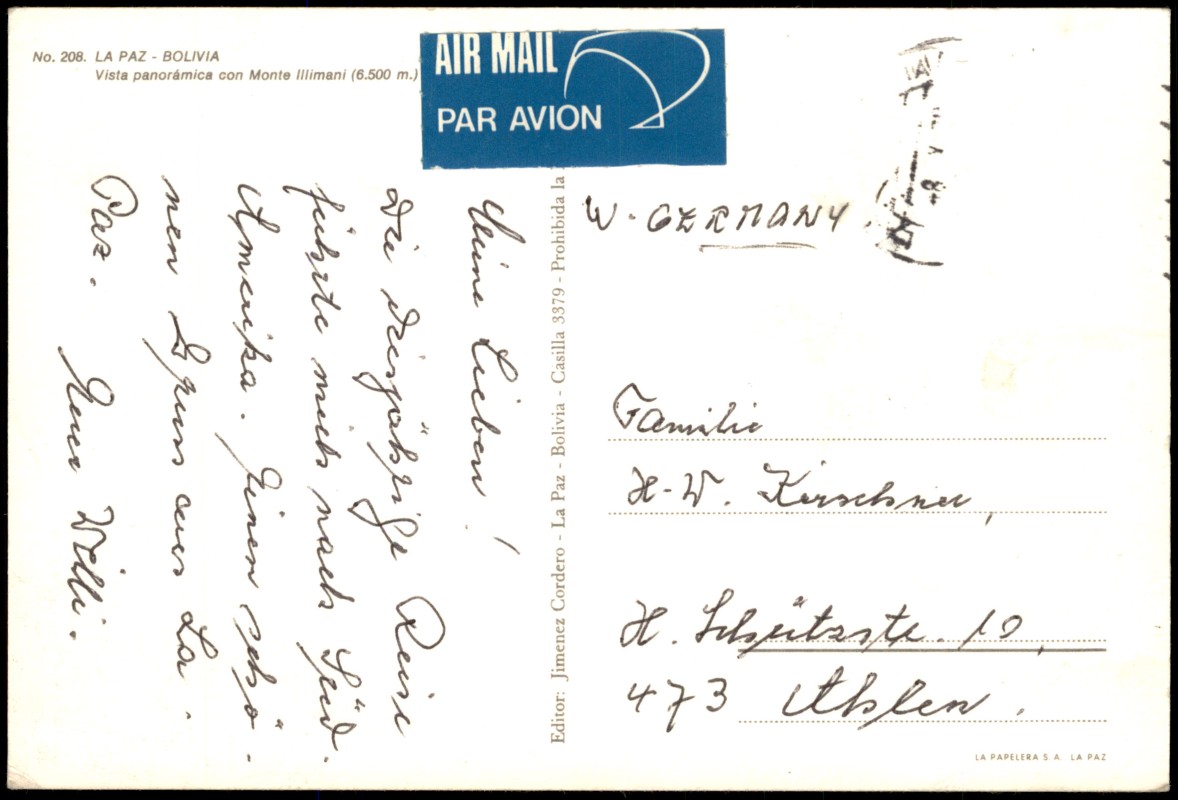 No. 208. LA PAZ - BOLIVIA
Vista panorámica con Monte Illimani (6.500 m.)
AIR MAIL
PAR AVION
Meine Lieben!
Die diesjährige Reise
führte mich nach Süd-
Amerika. Einen schö-
nen Gruss aus La
Paz. Euer Willi.
Editor: Jimenez Cordero - La Paz - Bolivia - Casilla 3379 - Prohibida la
W. GERMANY
Familie
H-W. Kirschner,
H. Schützstr. 10,
473 Ahlen.
LA PAPELERA S. A. LA PAZ